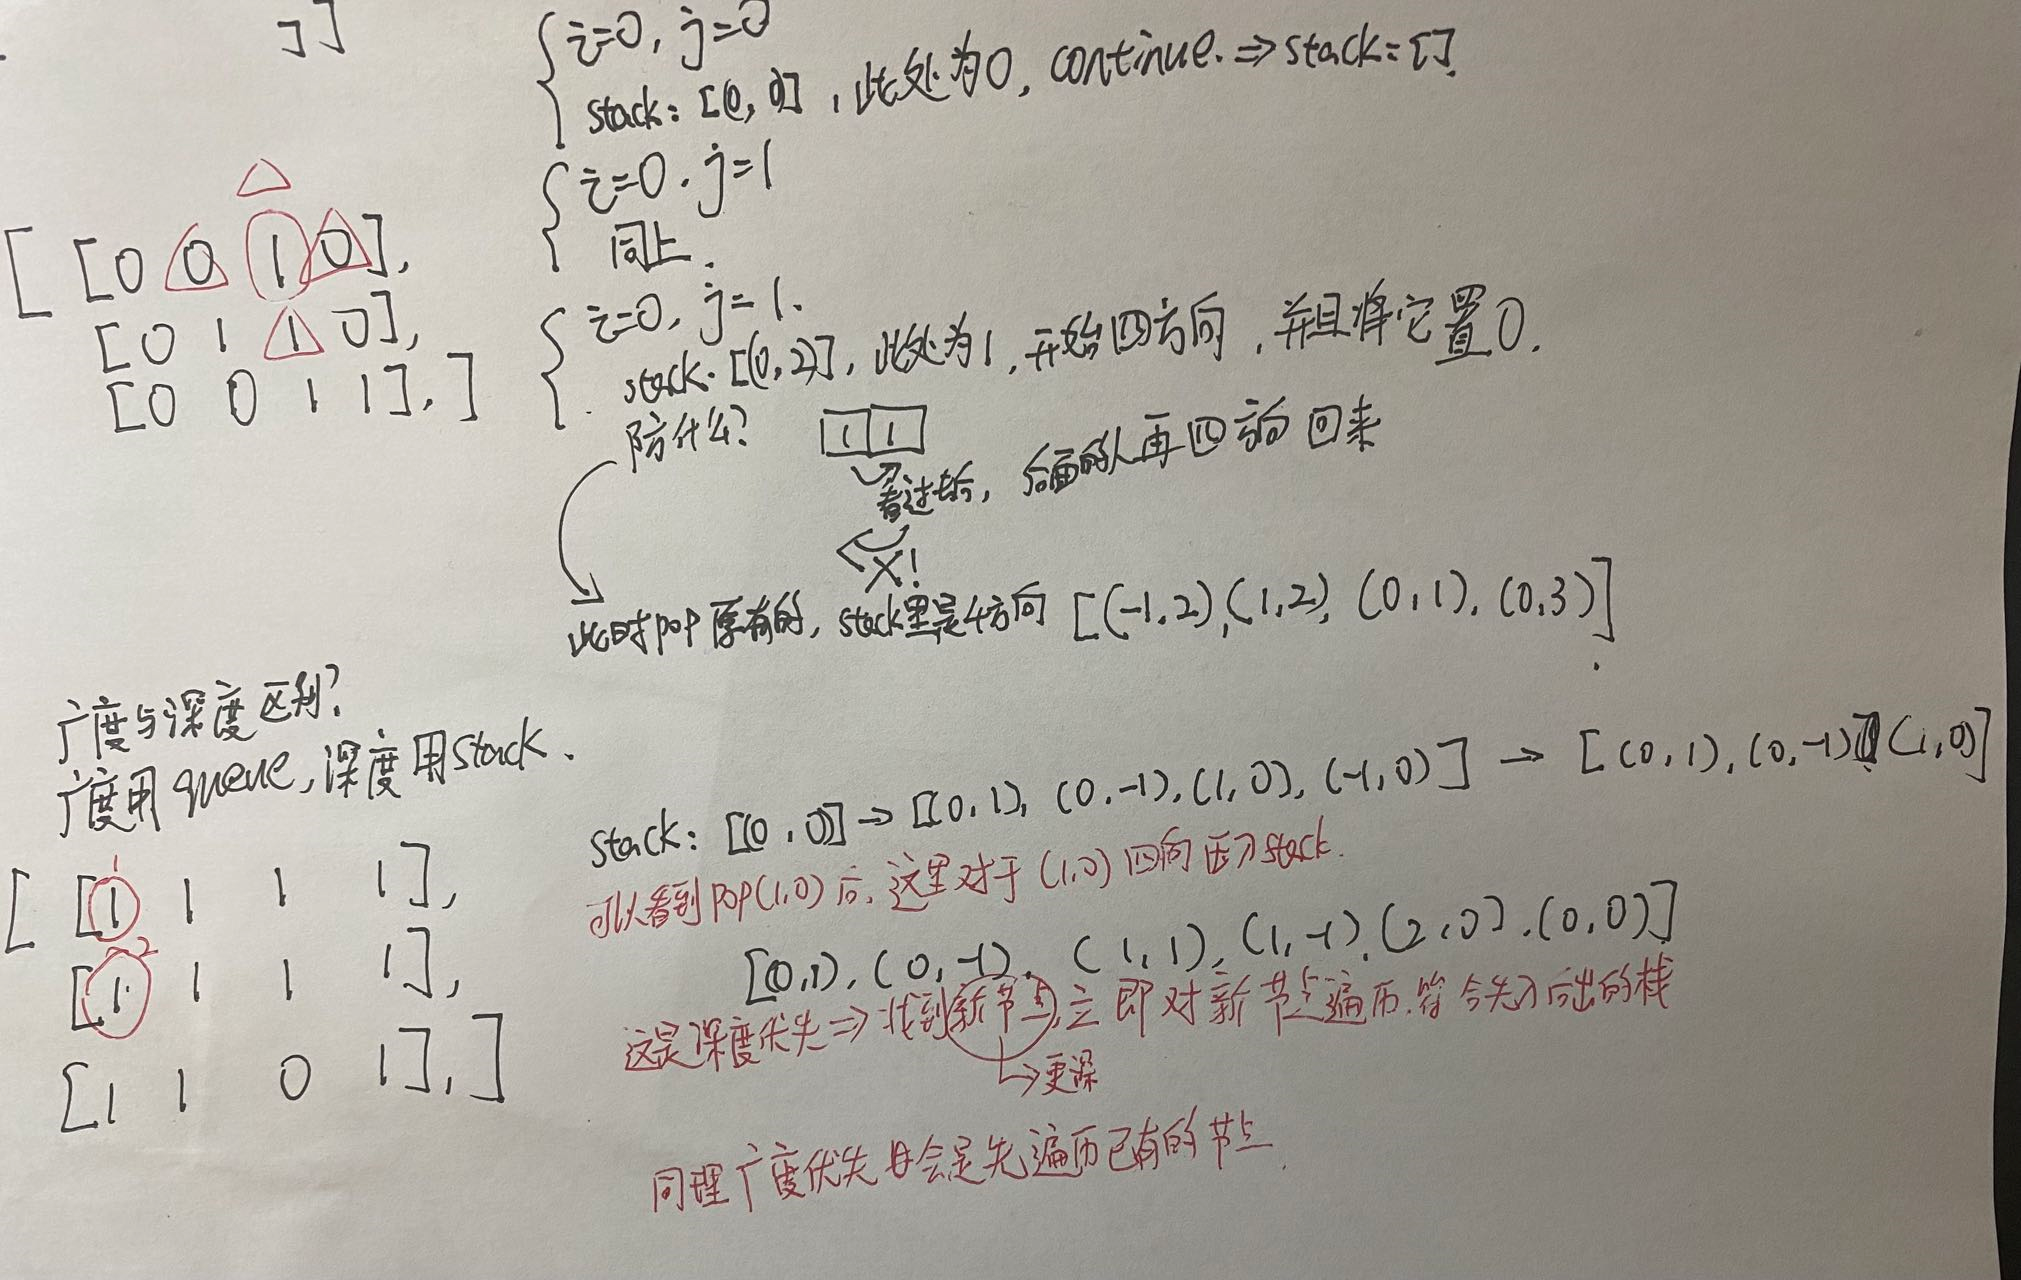 ]]
i=0, j=0
stack: [(0, 0)], 此处为0, continue. ⇒ stack=[].
i=0. j=1
同上.
[ [0 0 1 0],
[0 1 1 0],
[0 0 1 1], ]
i=0, j=1.
stack. [(0,2)], 此处为1, 开始四方向, 并且将它置0.
防什么?
1 1
看过去后, 后面的人再四方向回来
X!
此时pop原有的, stack里是4方向 [(-1,2), (1,2), (0,1), (0,3)]
广度与深度区别?
广度用queue, 深度用stack.
stack: [(0,0)] → [(0,1), (0,-1), (1,0), (-1,0)] → [(0,1), (0,-1) (1,0)]
可以看到pop(1,0)后, 这里对于(1,0)四向压入stack.
[(0,1), (0,-1), (1,1), (1,-1), (2,0), (0,0)]
这是深度优先⇒找到新节点, 立即对新节点遍历. 符合先入后出的栈
→更深
同理广度优先 会是先遍历已有的节点.
1
[ [1 1 1 1],
2
[1 1 1 1],
[1 1 0 1], ]